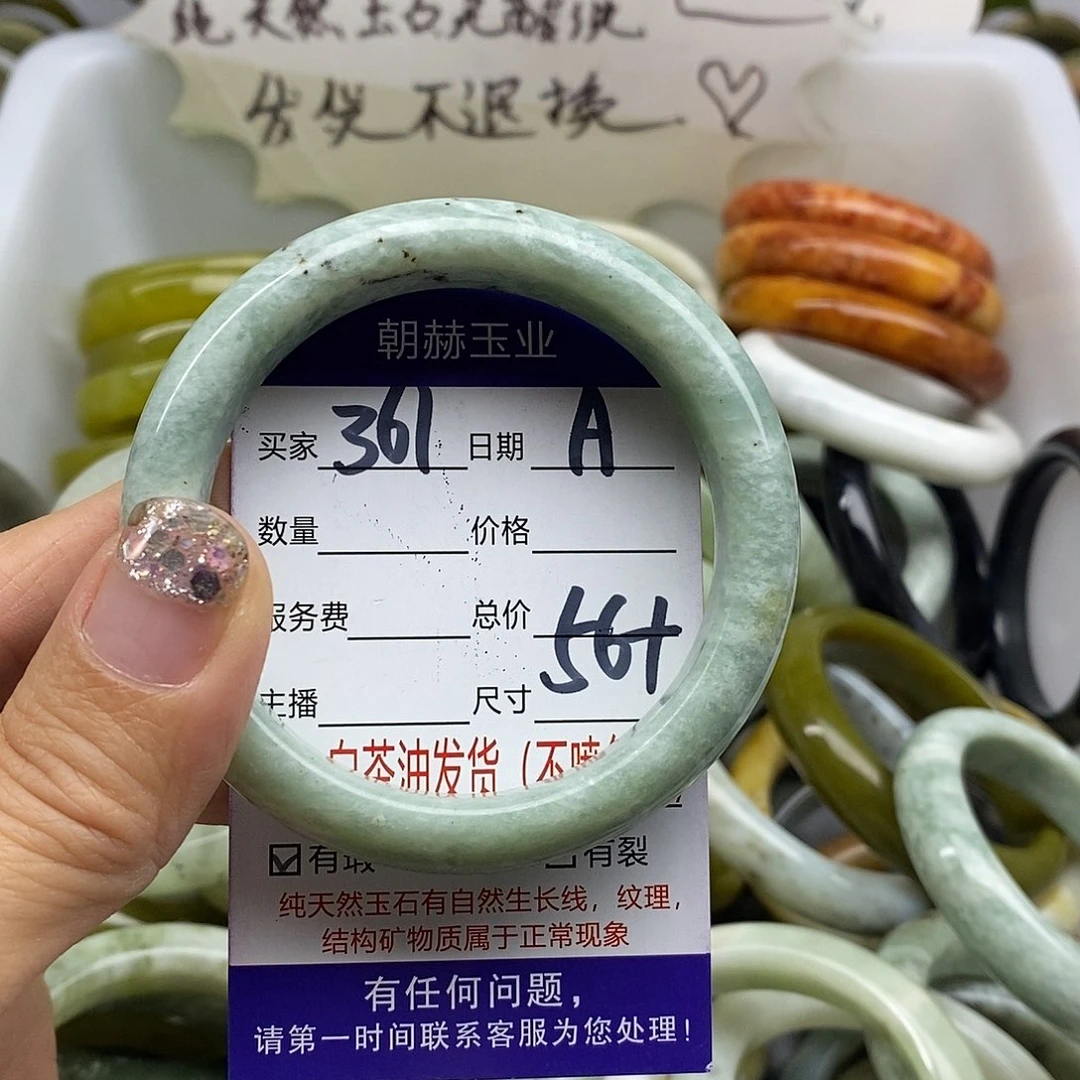 纯天然玉石无
发货不退换
朝赫玉业
买家 361 日期 A
数量 价格
服务费 总价
56+
主播 尺寸
白茶油发货（不喷
☑有瑕 有裂
纯天然玉石有自然生长线，纹理，
结构矿物质属于正常现象
有任何问题，
请第一时间联系客服为您处理！